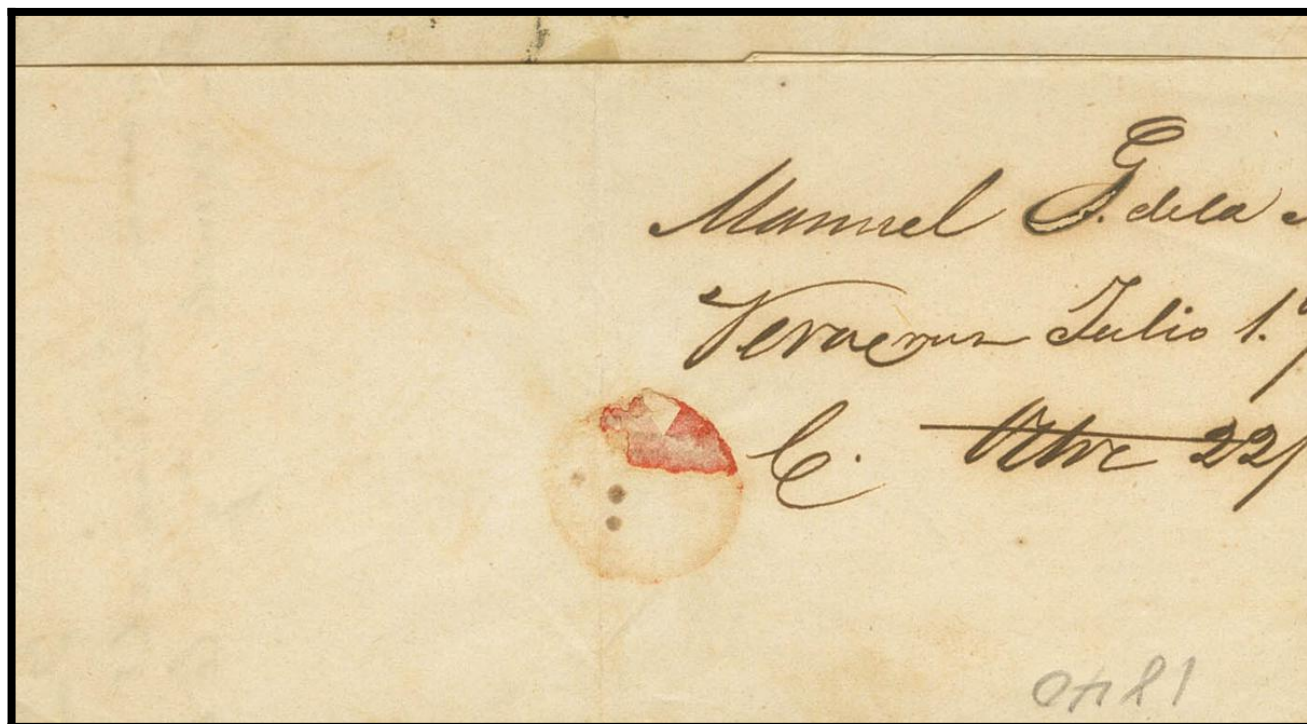 Manuel G. de la
Veracruz Julio 1.º/
C. 22/
1840